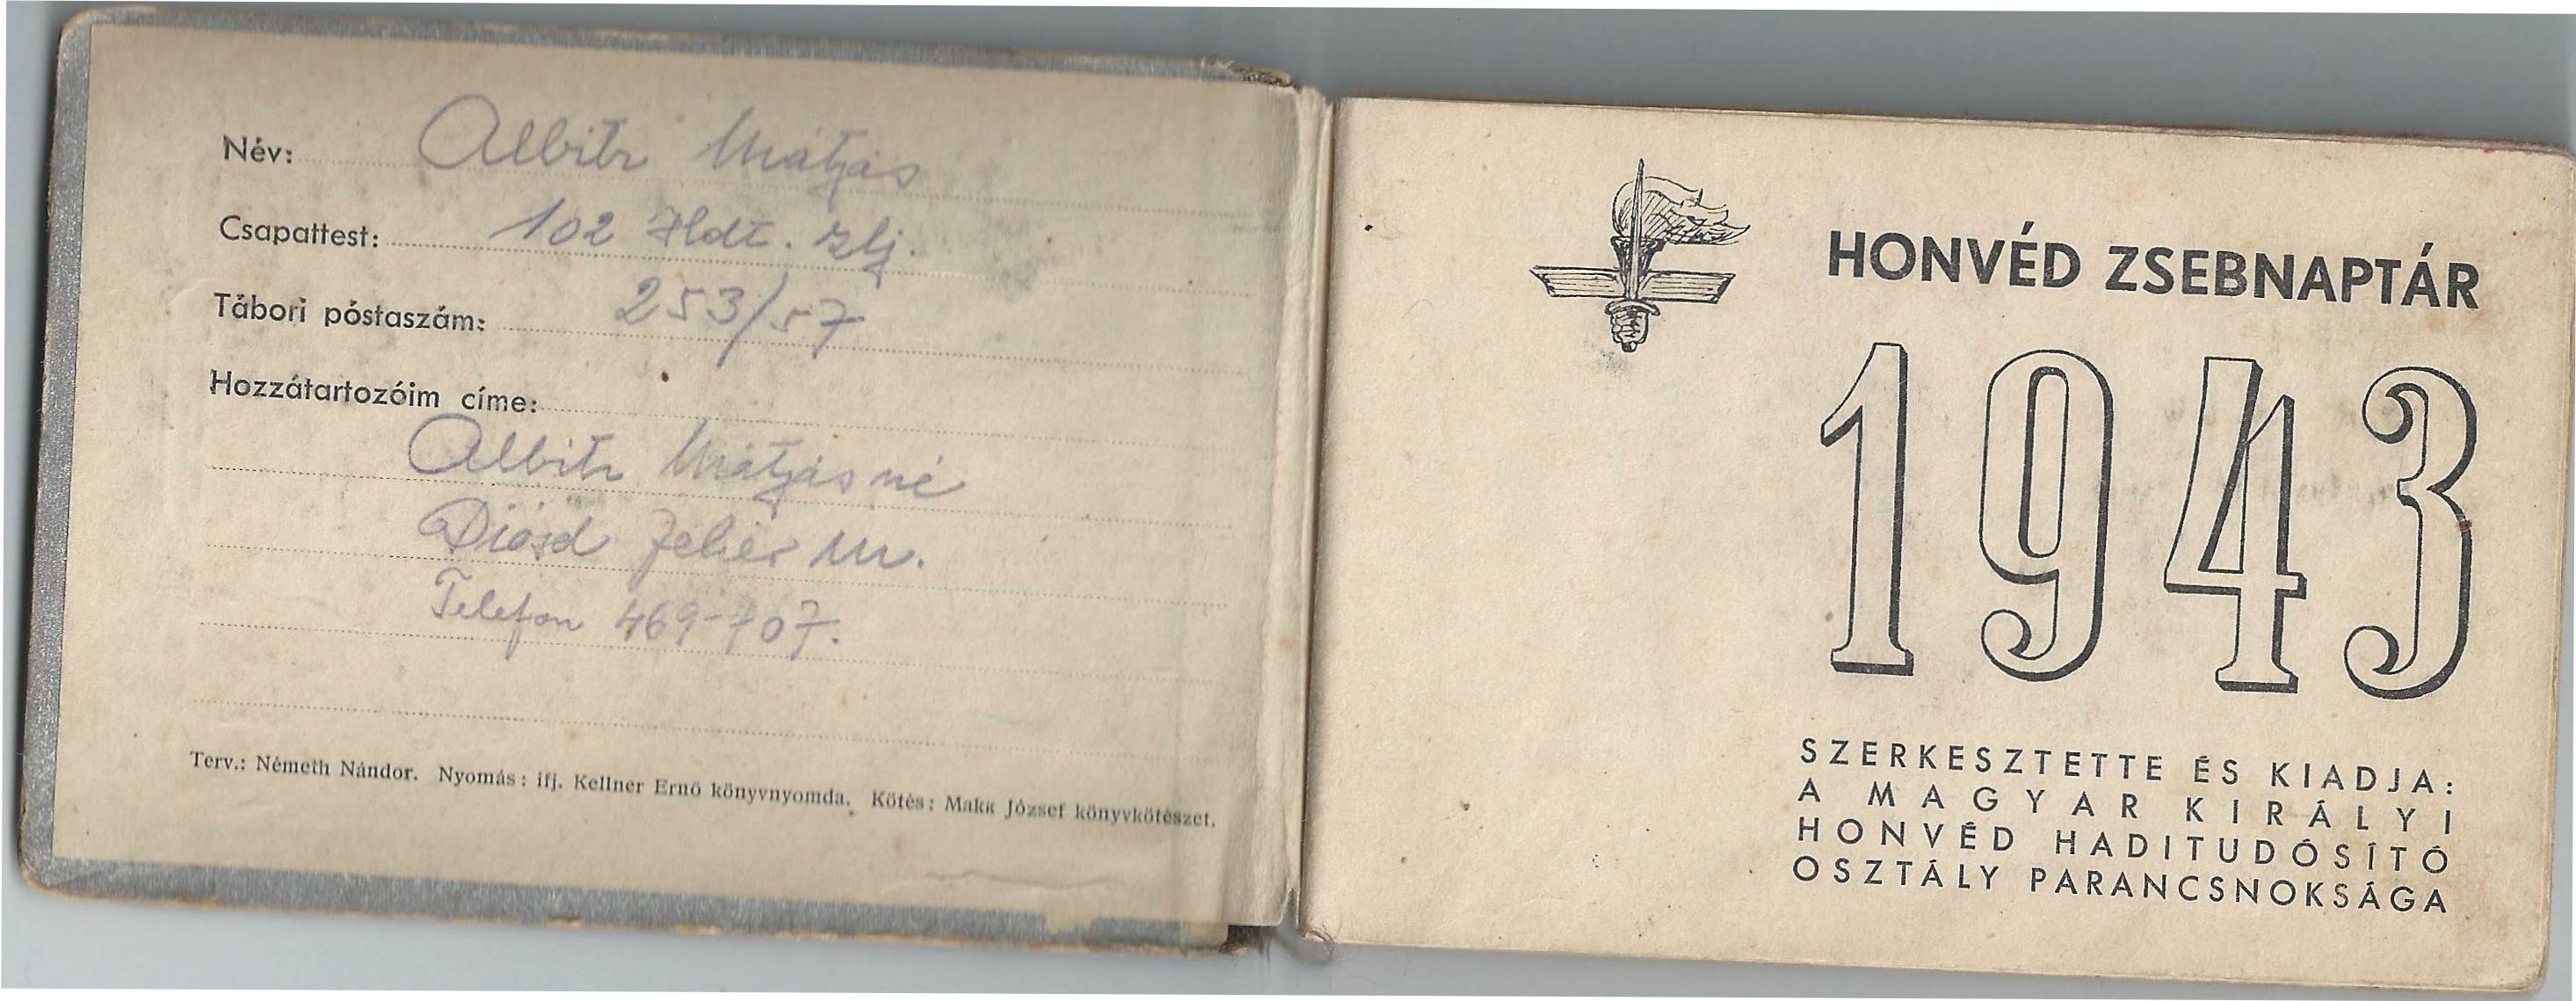 Név: Albitz Mátyás
Csapattest: 102 zlj.
Tábori póstaszám: 253/57
Hozzátartozóim címe:
Albitz Mátyás né
Diósd Fehér m.
Telefon 469-707.
Terv.: Németh Nándor. Nyomás: ifj. Kellner Ernő könyvnyomda. Kötés: Makk József könyvkötészet.
HONVÉD ZSEBNAPTÁR
1943
SZERKESZTETTE ÉS KIADJA:
A MAGYAR KIRÁLYI
HONVÉD HADITUDÓSÍTÓ
OSZTÁLY PARANCSNOKSÁGA